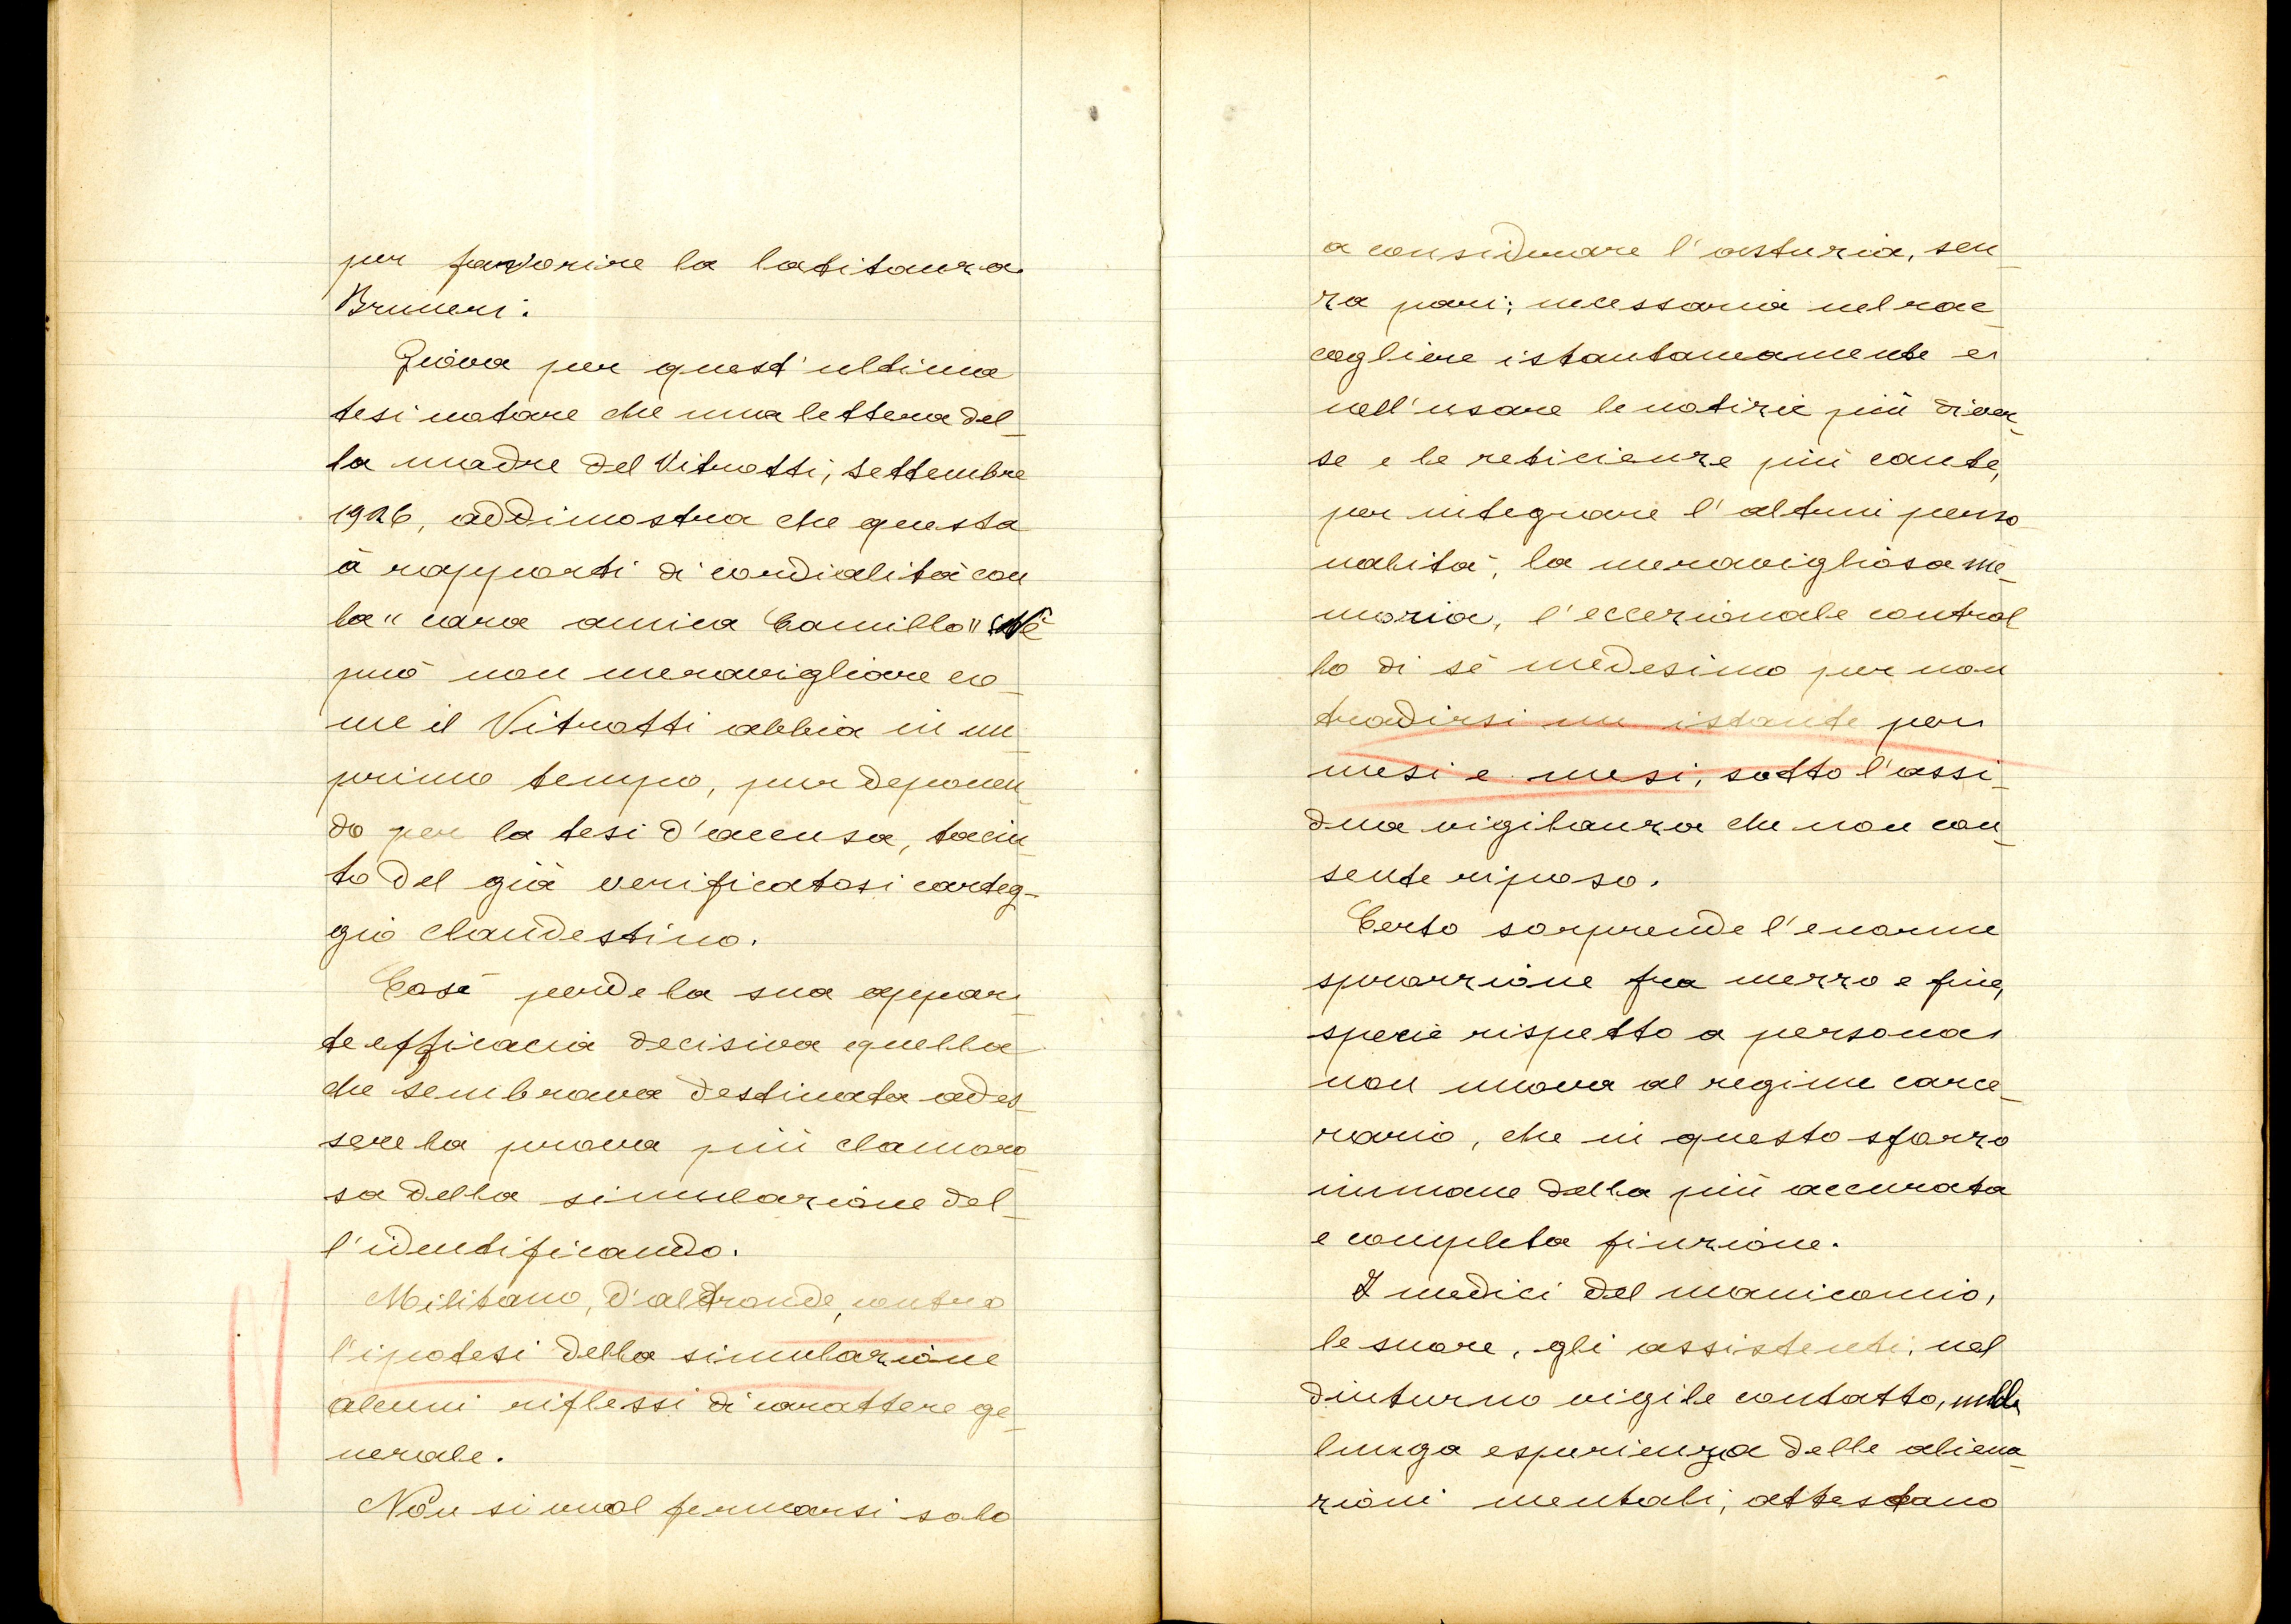 per favorire la latitanza
Bruneri.
Giova per quest'ultima
tesi notare che una lettera del-
la madre del Vitrotti, settembre
1926, addimostra che questa
à rapporti di cordialità con
la "cara amica Camilla" Nè
può non meravigliare co-
me il Vitrotti abbia in un
primo tempo, pur deponen-
do per la tesi d'accusa, taciu-
to del già verificatosi carteg-
gio clandestino.
Così perde la sua apparen-
te efficacia decisiva quella
che sembrava destinata ad es-
sere la prova più clamoro-
sa della simulazione del-
l'identificando.
Militano, d'altronde, contro
l'ipotesi della simulazione
alcuni riflessi di carattere ge-
nerale.
Non si vuol fermarsi solo
a considerare l'astuzia, sen-
za pari; necessaria nel rac-
cogliere istantaneamente e
nell'usare le notizie più diver-
se e le reticienze più caute,
per integrare l'altrui perso-
nalità, la meravigliosa me-
moria, l'eccezionale control
lo di sé medesimo per non
tradirsi un istante per
mesi e mesi, sotto l'assi-
dua vigilanza che non con-
sente riposo.
Certo sorprende l'enorme
sproorzione fra mezzo e fine,
specie rispetto a persona
non nuova al regime carce-
rario, che in questo sforzo
immane della più accurata
e completa finzione.
I medici del manicomio,
le suore, gli assistenti, nel
diuturno vigile contatto, nella
lunga esperienza delle aliena-
zioni mentali, attestano